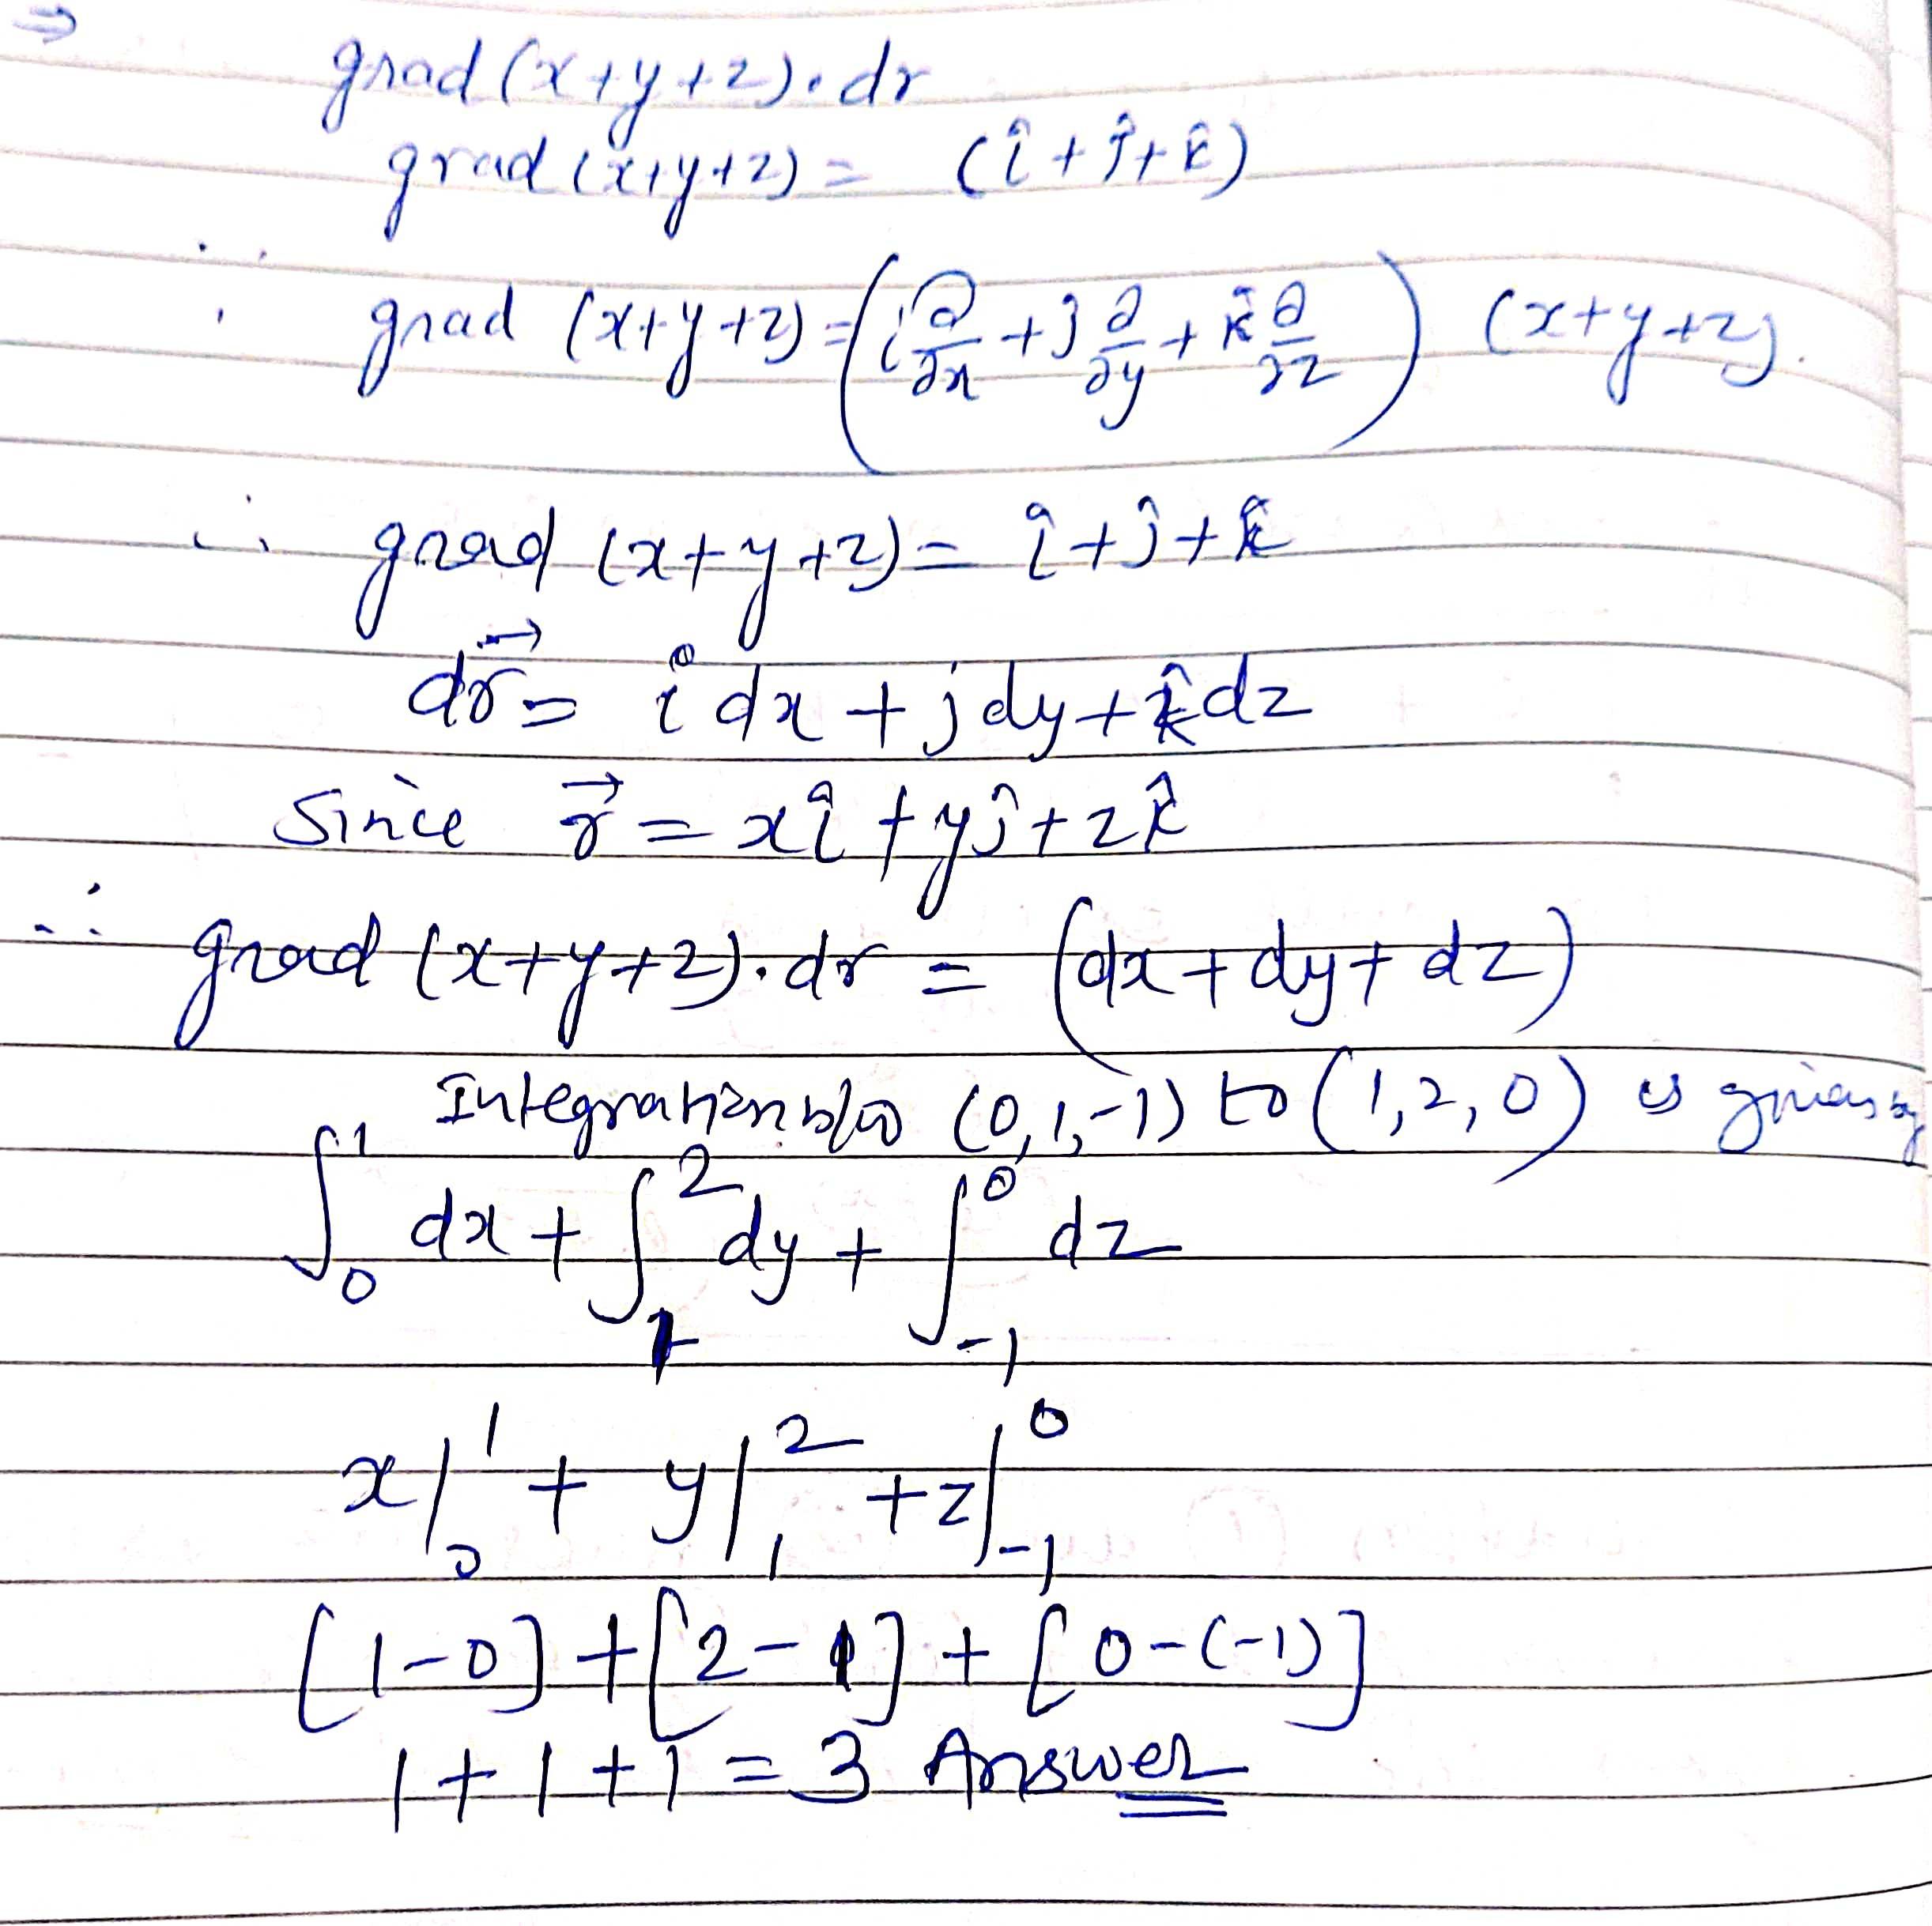 ⇒
grad (x+y+z). dr
grad (x+y+z) = (î + ĵ + k̂)
∴ grad (x+y+z) = (i ∂/∂x + ĵ ∂/∂y + k̂ ∂/∂z) (x+y+z).
∴ grad (x+y+z) = î + ĵ + k̂
dr⃗ = î dx + j dy + k̂ dz
Since r⃗ = xî + yĵ + zk̂
∴ grad (x+y+z). dr = (dx + dy + dz)
Integration b/w (0,1,-1) to (1,2,0) is given by
∫₀¹ dx + ∫₁² dy + ∫₋₁⁰ dz
x|₀¹ + y|₁² + z|₋₁⁰
[1-0] + [2-1] + [0-(-1)]
1+1+1 = 3 Answer